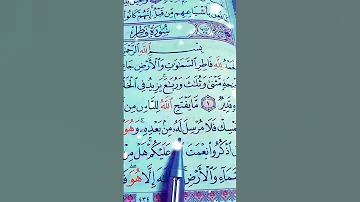 بأشياعهم من قبل إنهم كانوا
سورة فاطر
بسم الله الرحمن
الله فاطر السموات والأرض جا
حة مثنى وثلث وربع يزيد في الخل
قدير ١ ما يفتح الله للناس من
مسك فلا مرسل له من بعده وهو
اذكروا نعمت عليكم هل من
ماء والأرض إله إلا هو ف